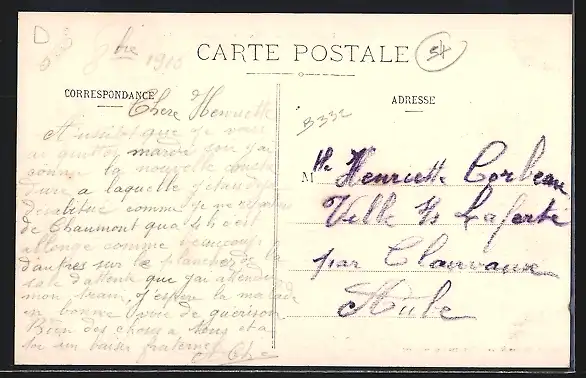 8bre 1910
CARTE POSTALE
54
CORRESPONDANCE
ADRESSE
B332
Chère Henriette
Aussitôt que je vous
ai quitter mardi soir j'ai
connu la nouvelle
a laquelle
comme je ne
de Chaumont qua 4 h c'est
allonge comme beaucoup
d'autres sur le blanches de la
sale d'attente que j'ai attendu
mon train, J'espère la malade
en bonne voie de guérison
Bien des choses a tous et a
toi un baiser fraternel
Mlle Henriette Corbeau
Ville s/s Laferté
par Clairvaux
Aube